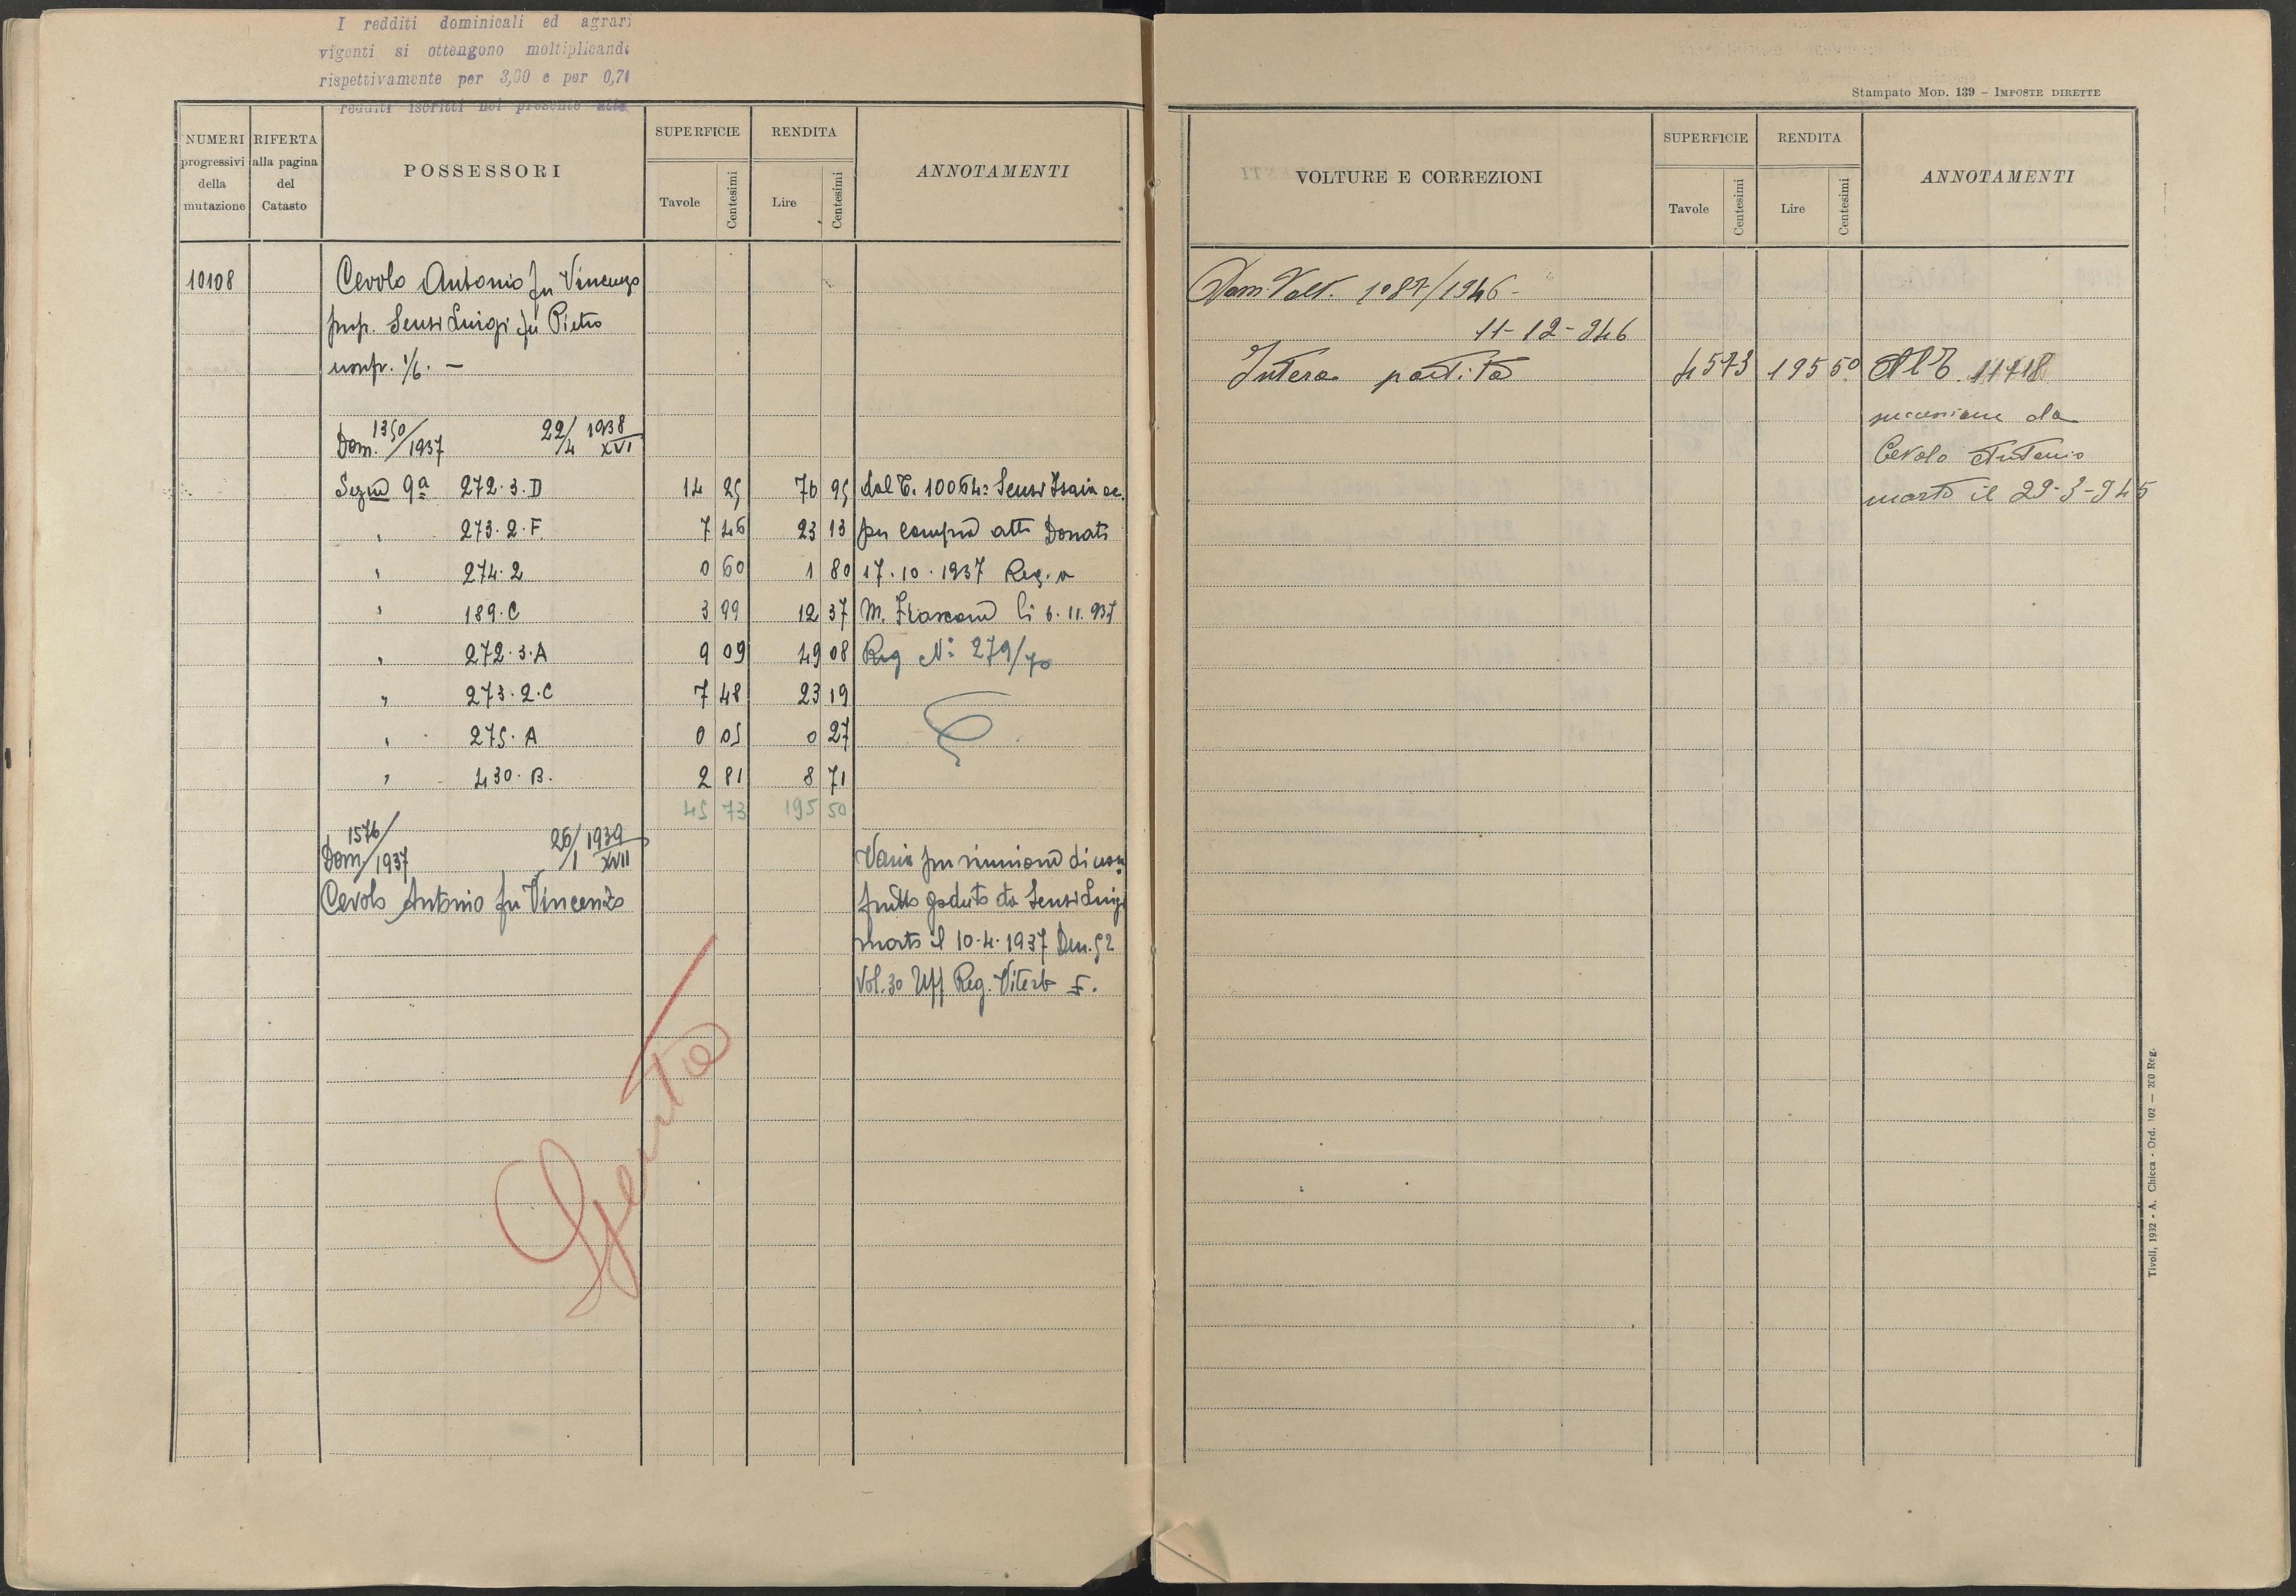 I redditi dominicali ed agrari
vigenti si ottengono moltiplicando
rispettivamente per 3,00 e per 0,70
redditi iscritti nel presente atto
NUMERI progressivi della mutazione
RIFERTA alla pagina del Catasto
POSSESSORI
SUPERFICIE
Tavole Centesimi
RENDITA
Lire Centesimi
ANNOTAMENTI
10108 Cevolo Antonio fu Vincenzo
prop. Sensi Luigi fu Pietro
usufr. 1/6. —
Dom. 1350/1937 22/4 1938 XVI
Segue 9ª 272.3.D 14 25 76 95 dal C. 10064: Sensi Isaia ec.
" 273.2.F. 7 46 23 13 per compra atto Donati
" 274.2 0 60 1 80 17.10.1937 Reg. a
" 189.C 3 99 12 37 M. Frascone li 6.11.937
" 272.3.A 9 09 49 08 Reg N: 279/70
" 273.2.C 7 48 23 19
" 275.A 0 05 0 27
" 430.B. 2 81 8 71
45 73 195 50
Dom. 1576/1937 26/1 1939 XVII
Varia per riunione di usu
Cevolo Antonio fu Vincenzo frutto goduto da Sensi Luigi
morto il 10.4.1937 Den. 52
Vol. 30 Uff Reg. Viterbo
Spento
Stampato Mod. 139 – Imposte dirette
VOLTURE E CORREZIONI
SUPERFICIE
Tavole Centesimi
RENDITA
Lire Centesimi
ANNOTAMENTI
Dom. Volt. 1087/1946 -
11-12-946
Intera partita 4573 195 50 Al C. 11718
successione da
Cevolo Antonio
morto il 29-3-945
Tivoli, 1932 - A. Chicca - Ord. 102 — 200 Reg.